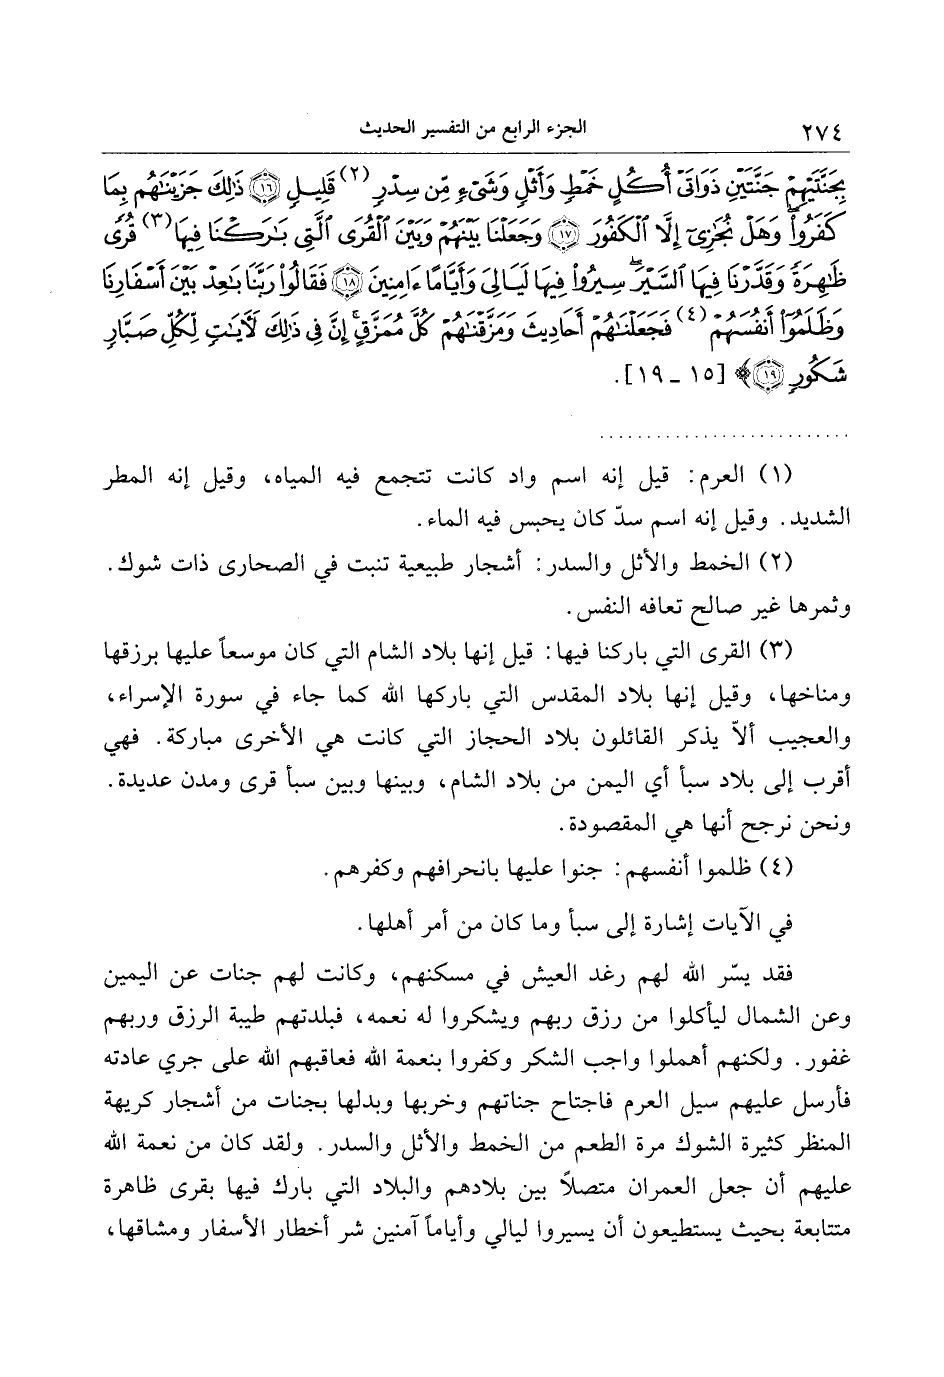 ٢٧٤ الجزء الرابع من التفسير الحديث
بِجَنَّتَيۡهِمۡ جَنَّتَيۡنِ ذَوَاتَيۡ أُكُلٍ خَمۡطٖ وَأَثۡلٖ وَشَيۡءٖ مِّن سِدۡرٖ (٢) قَلِيلٖ ١٦ ذَٰلِكَ جَزَيۡنَٰهُم بِمَا
كَفَرُواْۖ وَهَلۡ نُجَٰزِيٓ إِلَّا ٱلۡكَفُورَ ١٧ وَجَعَلۡنَا بَيۡنَهُمۡ وَبَيۡنَ ٱلۡقُرَى ٱلَّتِي بَٰرَكۡنَا فِيهَا (٣) قُرٗى
ظَٰهِرَةٗ وَقَدَّرۡنَا فِيهَا ٱلسَّيۡرَۖ سِيرُواْ فِيهَا لَيَالِيَ وَأَيَّامًا ءَامِنِينَ ١٨ فَقَالُواْ رَبَّنَا بَٰعِدۡ بَيۡنَ أَسۡفَارِنَا
وَظَلَمُوٓاْ أَنفُسَهُمۡ (٤) فَجَعَلۡنَٰهُمۡ أَحَادِيثَ وَمَزَّقۡنَٰهُمۡ كُلَّ مُمَزَّقٍۚ إِنَّ فِي ذَٰلِكَ لَأٓيَٰتٖ لِّكُلِّ صَبَّارٖ
شَكُورٖ ١٩﴾ [١٥ ـ ١٩].
. . . . . . . . . . . . . . . . . . . . . . . . .
(١) العرم: قيل إنه اسم واد كانت تتجمع فيه المياه، وقيل إنه المطر
الشديد. وقيل إنه اسم سدّ كان يحبس فيه الماء.
(٢) الخمط والأثل والسدر: أشجار طبيعية تنبت في الصحارى ذات شوك.
وثمرها غير صالح تعافه النفس.
(٣) القرى التي باركنا فيها: قيل إنها بلاد الشام التي كان موسعاً عليها برزقها
ومناخها، وقيل إنها بلاد المقدس التي باركها الله كما جاء في سورة الإسراء،
والعجيب ألاّ يذكر القائلون بلاد الحجاز التي كانت هي الأخرى مباركة. فهي
أقرب إلى بلاد سبأ أي اليمن من بلاد الشام، وبينها وبين سبأ قرى ومدن عديدة.
ونحن نرجح أنها هي المقصودة.
(٤) ظلموا أنفسهم: جنوا عليها بانحرافهم وكفرهم.
في الآيات إشارة إلى سبأ وما كان من أمر أهلها.
فقد يسّر الله لهم رغد العيش في مسكنهم، وكانت لهم جنات عن اليمين
وعن الشمال ليأكلوا من رزق ربهم ويشكروا له نعمه، فبلدتهم طيبة الرزق وربهم
غفور. ولكنهم أهملوا واجب الشكر وكفروا بنعمة الله فعاقبهم الله على جري عادته
فأرسل عليهم سيل العرم فاجتاح جناتهم وخربها وبدلها بجنات من أشجار كريهة
المنظر كثيرة الشوك مرة الطعم من الخمط والأثل والسدر. ولقد كان من نعمة الله
عليهم أن جعل العمران متصلاً بين بلادهم والبلاد التي بارك فيها بقرى ظاهرة
متتابعة بحيث يستطيعون أن يسيروا ليالي وأياماً آمنين شر أخطار الأسفار ومشاقها،